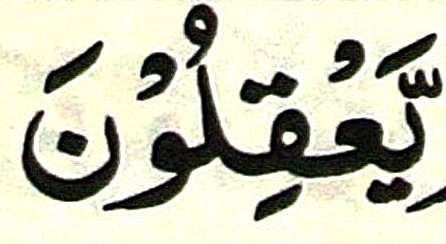 يَّعْقِلُوْنَ